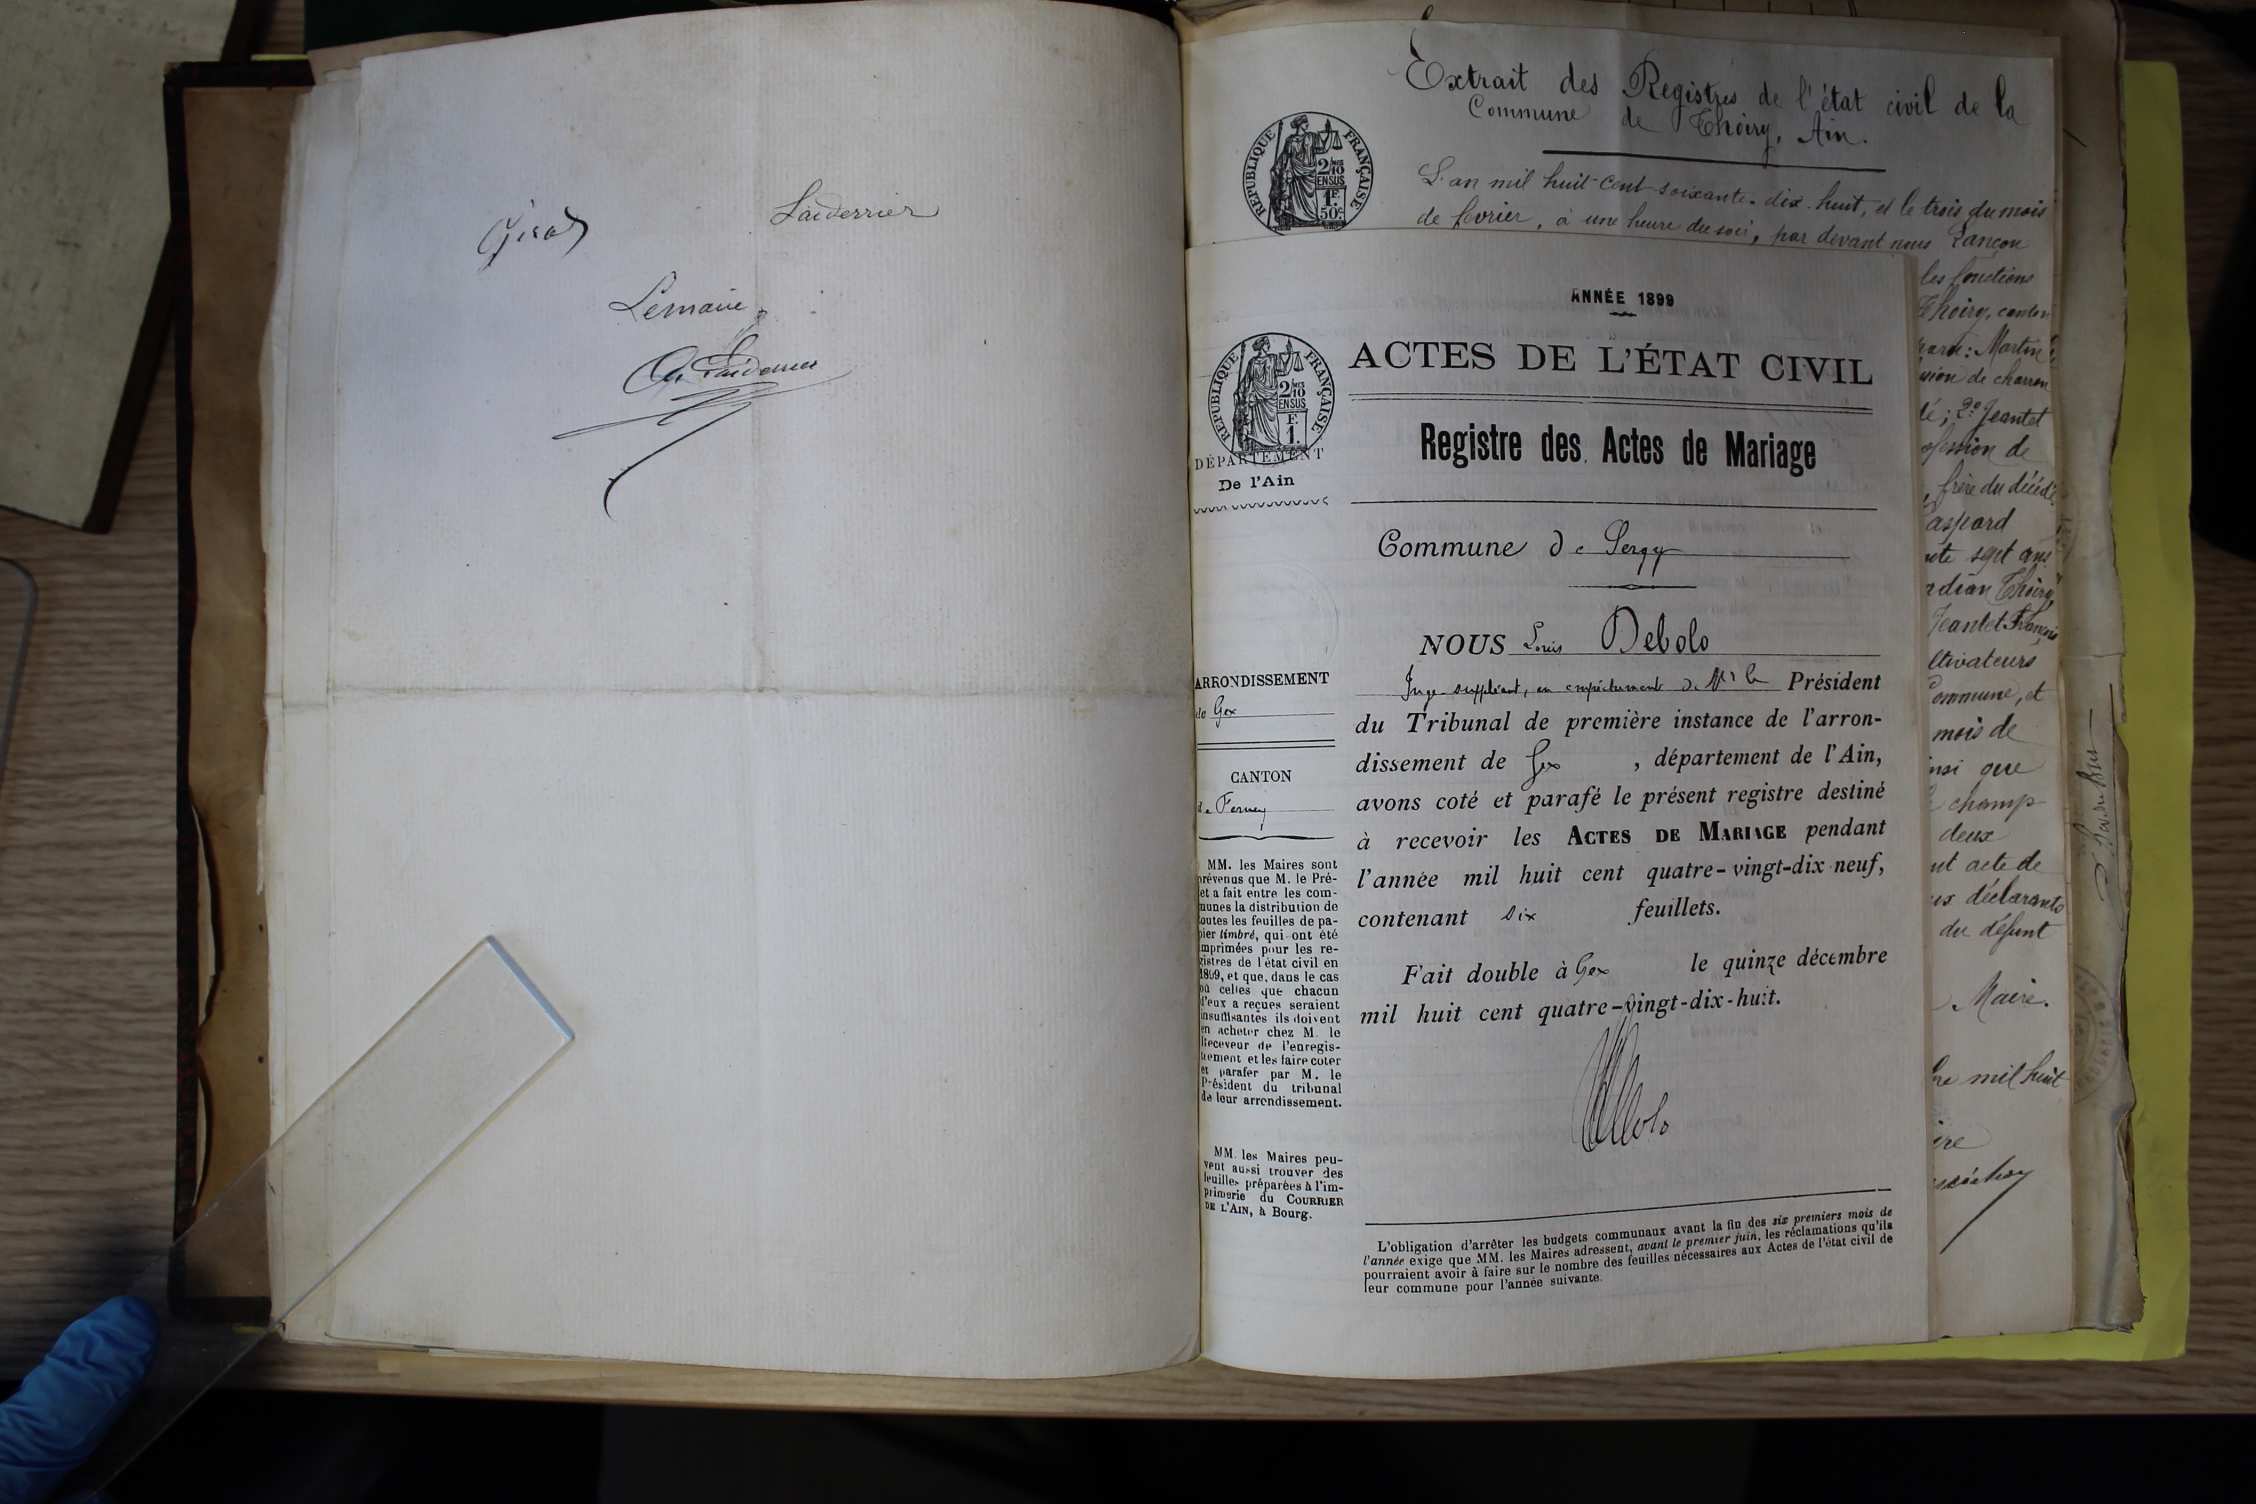 Girod
Laiderrier
Lemaire
Extrait des Registres de l'état civil de la
Commune de Thoiry, Ain.
RÉPUBLIQUE FRANÇAISE
2/10MES
EN SUS
1F.
50c
L'an mil huit-cent-soixante-dix-huit, et le trois du mois
de fevrier, à une heure du soir, par devant nous Lançon
les fonctions
Thoiry, canton
: Martin
de charron
dé ; 2º Jeantet
de
, frère du décédé
aspard
sept ans
Thoiry
Jeantet François
ltivateurs
Commune, et
mois de
insi que
champ
deux
nt acte de
déclarants
du défunt
Maire.
mil huit
ANNÉE 1899
RÉPUBLIQUE FRANÇAISE
2/10MES
EN SUS
F.
1.
ACTES DE L'ÉTAT CIVIL
Registre des Actes de Mariage
DÉPARTEMENT
De l'Ain
Commune de Sergy
NOUS Louis Debolo
Juge suppléant, en empêchement de Mr le Président
du Tribunal de première instance de l'arron-
dissement de Gex , département de l'Ain,
avons coté et parafé le présent registre destiné
à recevoir les ACTES DE MARIAGE pendant
l'année mil huit cent quatre-vingt-dix neuf,
contenant six feuillets.
Fait double à Gex le quinze décembre
mil huit cent quatre-vingt-dix-huit.
Debolo
ARRONDISSEMENT
de Gex
CANTON
de Ferney
MM. les Maires sont
prévenus que M. le Pré-
et a fait entre les com-
munes la distribution de
toutes les feuilles de pa-
pier timbré, qui ont été
imprimées pour les re-
gistres de l'état civil en
1899, et que, dans le cas
où celles que chacun
d'eux a reçues seraient
insuffisantes ils doivent
en acheter chez M. le
Receveur de l'enregis-
trement et les faire coter
et parafer par M. le
Président du tribunal
de leur arrondissement.
MM. les Maires peu-
vent aussi trouver des
feuilles préparées à l'im-
primerie du COURRIER
DE L'AIN, à Bourg.
L'obligation d'arrêter les budgets communaux avant la fin des six premiers mois de
l'année exige que MM. les Maires adressent, avant le premier juin, les réclamations qu'ils
pourraient avoir à faire sur le nombre des feuilles nécessaires aux Actes de l'état civil de
leur commune pour l'année suivante.